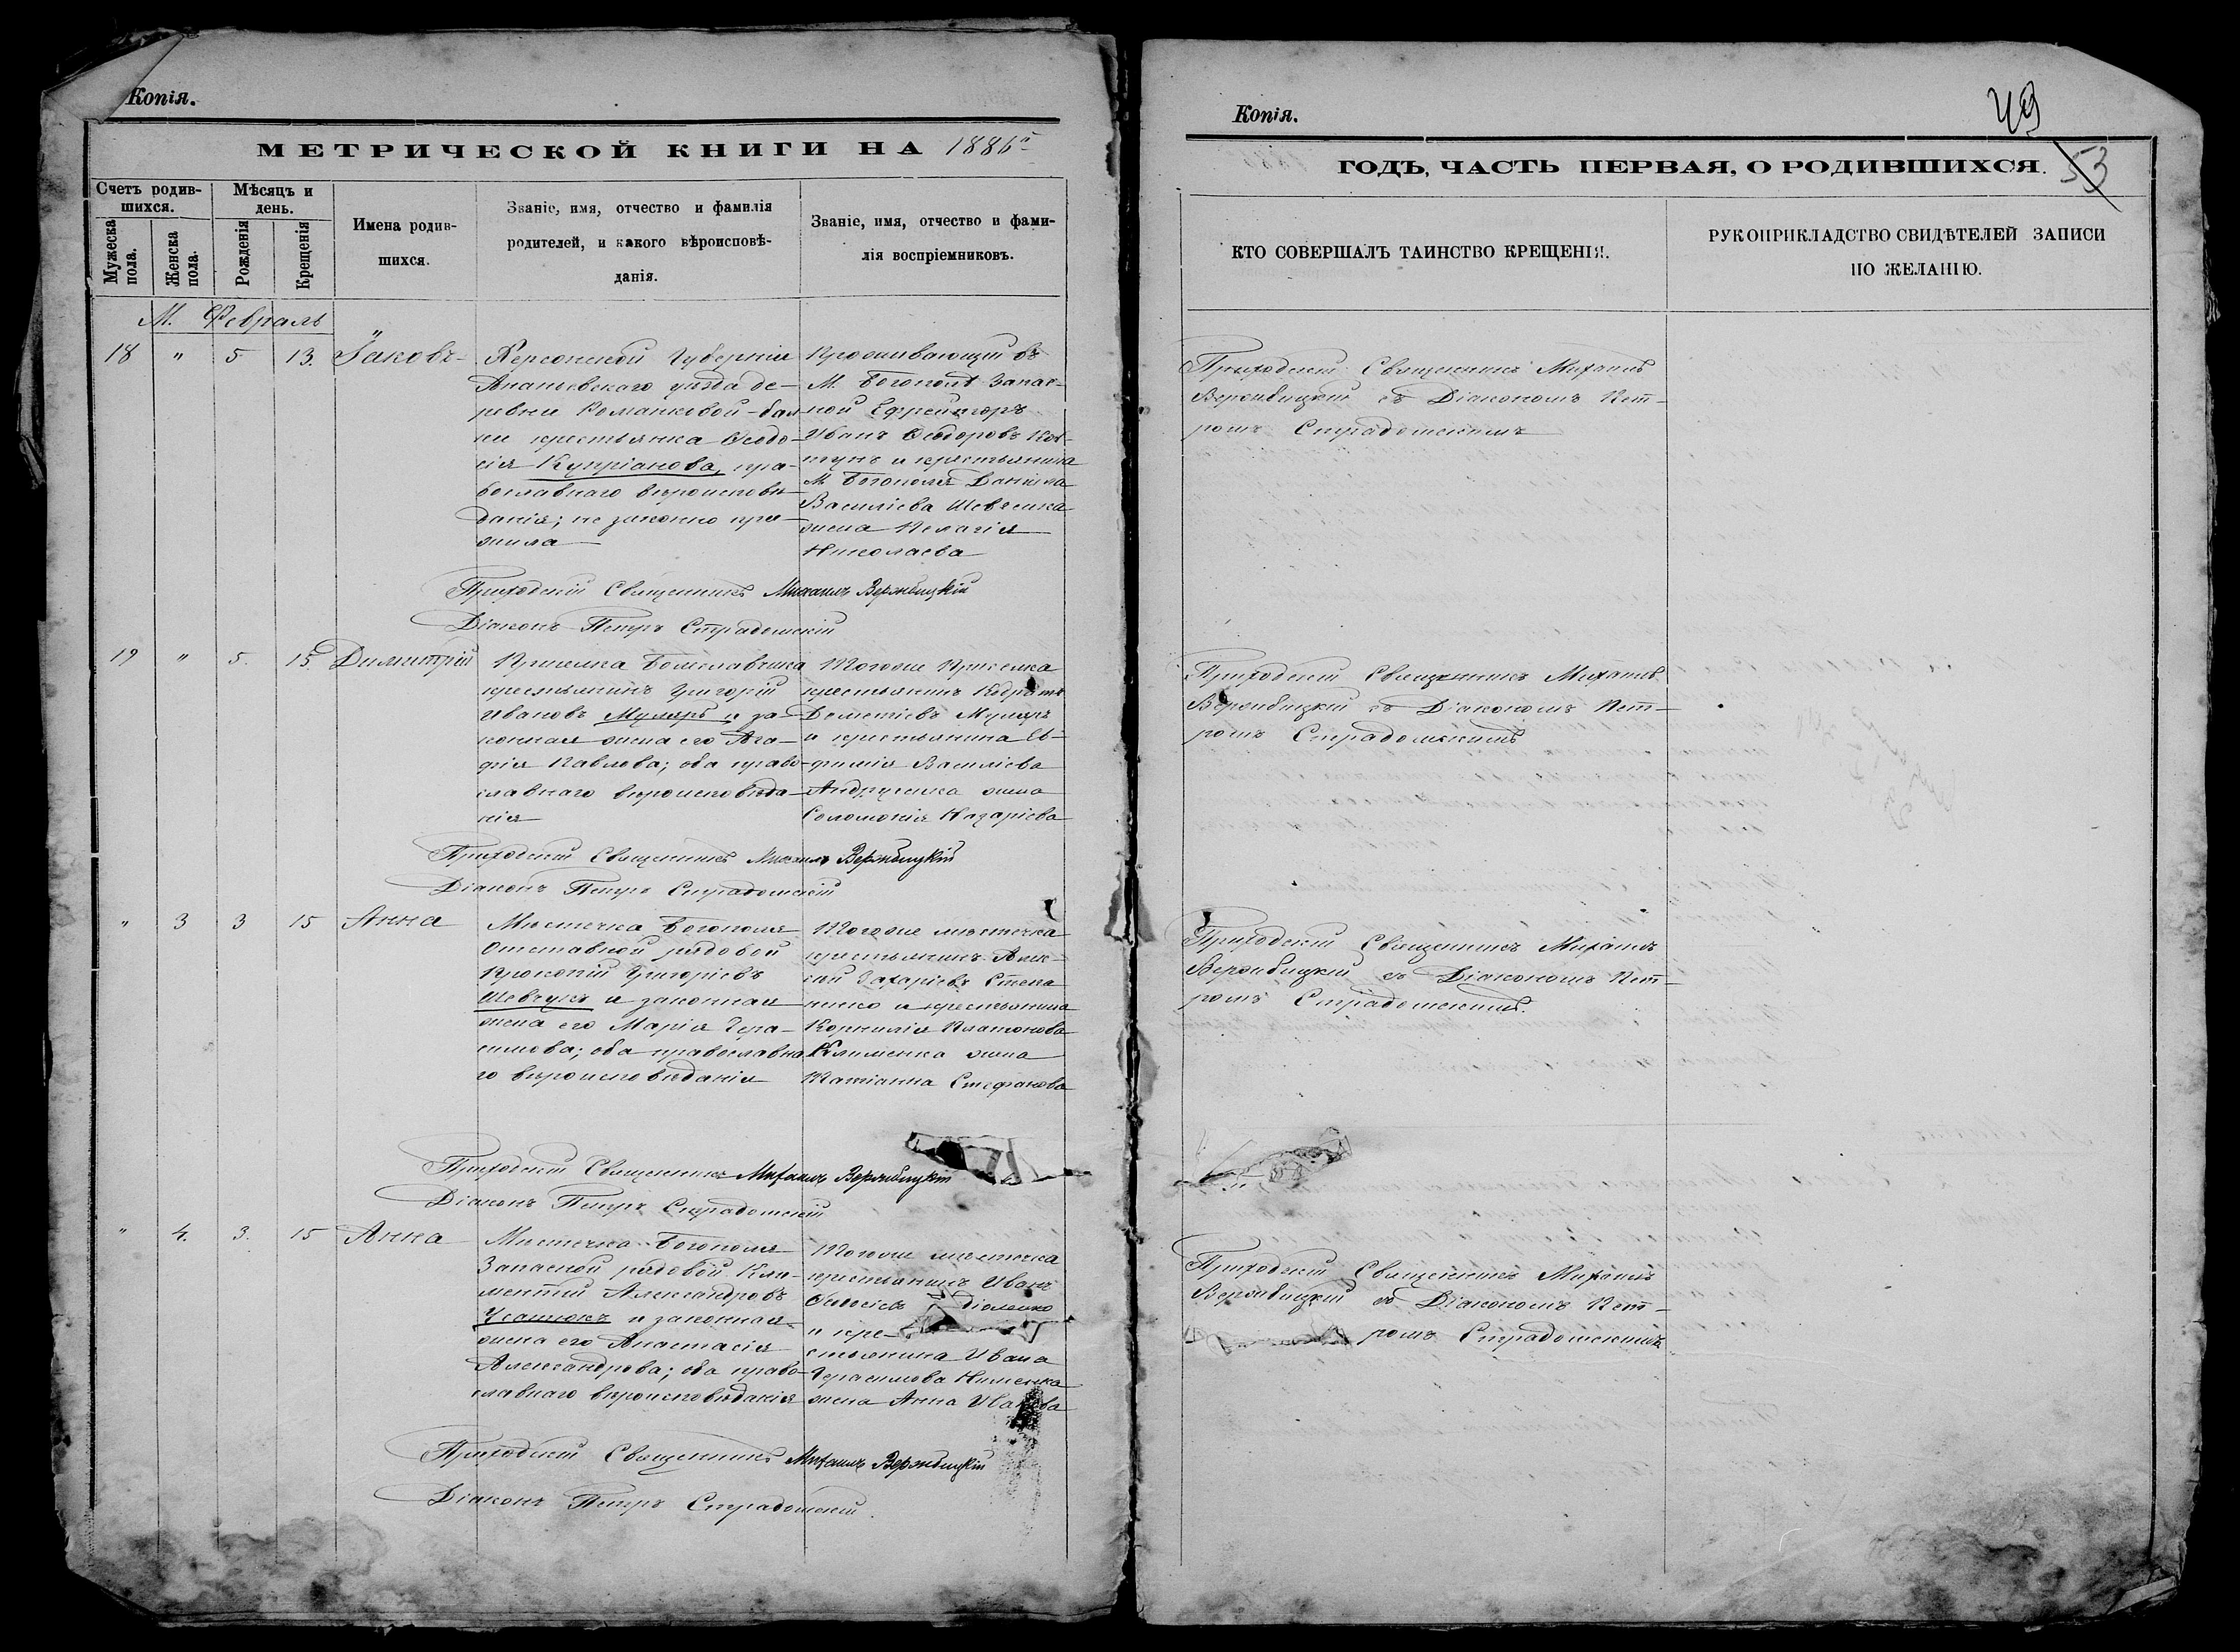 Копія.
МЕТРИЧЕСКОЙ КНИГИ НА 1886й
Счетъ родив-
шихся.
Мѣсяцъ и
день.
Мужеска
пола.
Женска
пола.
Рожденія
Крещенія
Имена родив-
шихся.
Званіе, имя, отчество и фамилія
родителей, и какого вѣроисповѣ-
данія.
Званіе, имя, отчество и фами-
лія воспріемниковъ.
М. Февраль
18 " 5 13. Іаковъ
Херсонской Губерніи
Ананьевскаго уѣзда де-
ревни Романковой-бал-
ки крестьянка Ѳеодо-
сія Купріанова, пра-
вославнаго вѣроисповѣ-
данія; не законно при-
жила
Проживающій въ
М. Богополѣ Запас-
ной Ефрейторъ
Иванъ Ѳеодоровъ
и крестьянина
М. Богополя Даніила
Василіева Шевченка
жена Пелагія
Николаева
Приходскій Священникъ Михаилъ Вержбицкій
Діаконъ Петръ Страдомскій
19 " 5. 15 Димитрій
Приселка Болеславчика
крестьянинъ Григорій
Ивановъ Муляръ и за-
конная жена его Ага-
фія Павлова; оба право-
славнаго вѣроисповѣда-
нія
Тогоже Приселка
крестьянинъ Кодратъ
Дометіевъ Муляръ
и крестьянина Ев-
фимія Василіева
Андрущенка жена
Соломонія Назаріева
Приходскій Священникъ Михаилъ Вержбицкій
Діаконъ Петръ Страдомскій
" 3 3 15 Анна
Мѣстечка Богополя
Отставной рядовой
Прокопій Григоріевъ
Шевчукъ и законная
жена его Марія Гера-
симова; оба православна-
го вѣроисповѣданія
Тогоже мѣстечка
крестьянинъ Алек-
сій Захаріевъ Степа
ненко и крестьянина
Корнилія Платонова
Клименка жена
Татіанна Стефанова
Приходскій Священникъ Михаилъ Вержбицкій
Діаконъ Петръ Страдомскій
" 4. 3. 15 Анна
Мѣстечка Богополя
Запасной рядовой Кли-
ментій Александровъ
Усатюкъ и законная
жена его Анастасія
Александрова; оба право-
славнаго вѣроисповѣданія
Тогоже мѣстечка
крестьянинъ Иванъ
Ѳеодосіевъ
и кре-
стьянина Ивана
Герасимова
жена Анна Иванова
Приходскій Священникъ Михаилъ Вержбицкій
Діаконъ Петръ Страдомскій.
Копія.
49
53
ГОДЪ, ЧАСТЬ ПЕРВАЯ, О РОДИВШИХСЯ.
КТО СОВЕРШАЛЪ ТАИНСТВО КРЕЩЕНІЯ.
РУКОПРИКЛАДСТВО СВИДѢТЕЛЕЙ ЗАПИСИ
ПО ЖЕЛАНІЮ.
Приходскій Священникъ Михаилъ
Вержбицкій съ Діакономъ Пет-
ромъ Страдомскимъ
Приходскій Священникъ Михаилъ
Вержбицкій съ Діакономъ Пет-
ромъ Страдомскимъ
Приходскій Священникъ Михаилъ
Вержбицкій съ Діакономъ Пет-
ромъ Страдомскимъ.
Приходскій Священникъ Михаилъ
Вержбицкій съ Діакономъ Пет-
ромъ Страдомскимъ.